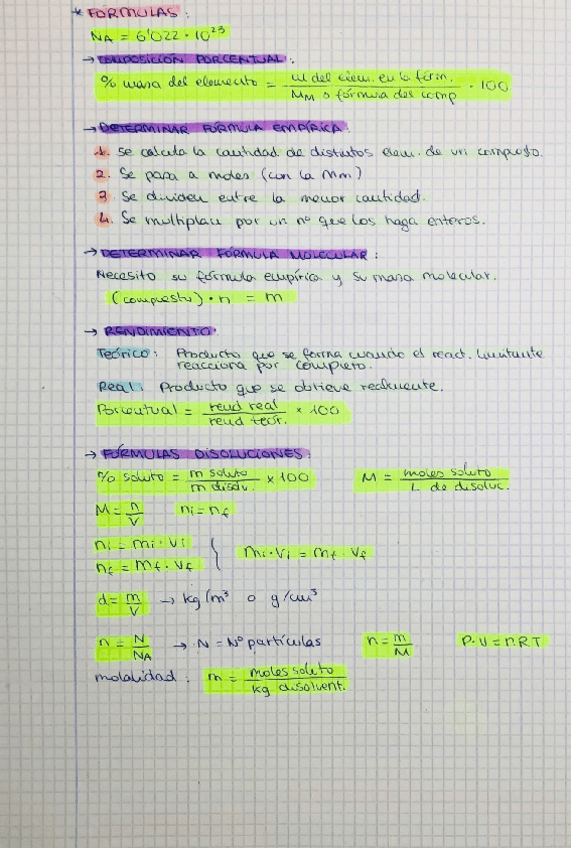 * FÓRMULAS:
NA = 6'022 · 10²³
→ COMPOSICIÓN PORCENTUAL:
% masa del elemento = m del elem. en la fórm. / MM o fórmula del comp · 100
→ DETERMINAR FÓRMULA EMPÍRICA:
1. Se calcula la cantidad de distintos elem. de un compuesto.
2. Se pasa a moles (con la Mm)
3. Se dividen entre la menor cantidad.
4. Se multiplican por un nº que los haga enteros.
→ DETERMINAR FÓRMULA MOLECULAR:
Necesito su fórmula empírica y su masa molecular.
(compuesto) · n = m
→ RENDIMIENTO:
Teórico: Producto que se forma cuando el react. limitante
reacciona por completo.
Real: Producto que se obtiene realmente.
Porcentual = rend real / rend teór. × 100
→ FÓRMULAS DISOLUCIONES:
% soluto = m soluto / m disolv. × 100 M = moles soluto / L de disoluc.
M = n/V ni = nf
ni = mi · Vi
nf = mf · Vf } mi · Vi = mf · Vf
d = m/V → kg/m³ o g/cm³
n = N/NA → N = Nº partículas n = m/M P·V = n·R·T
molalidad: m = moles soluto / kg disolvent.